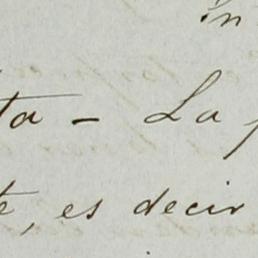 in
ta - La p
te, es decir